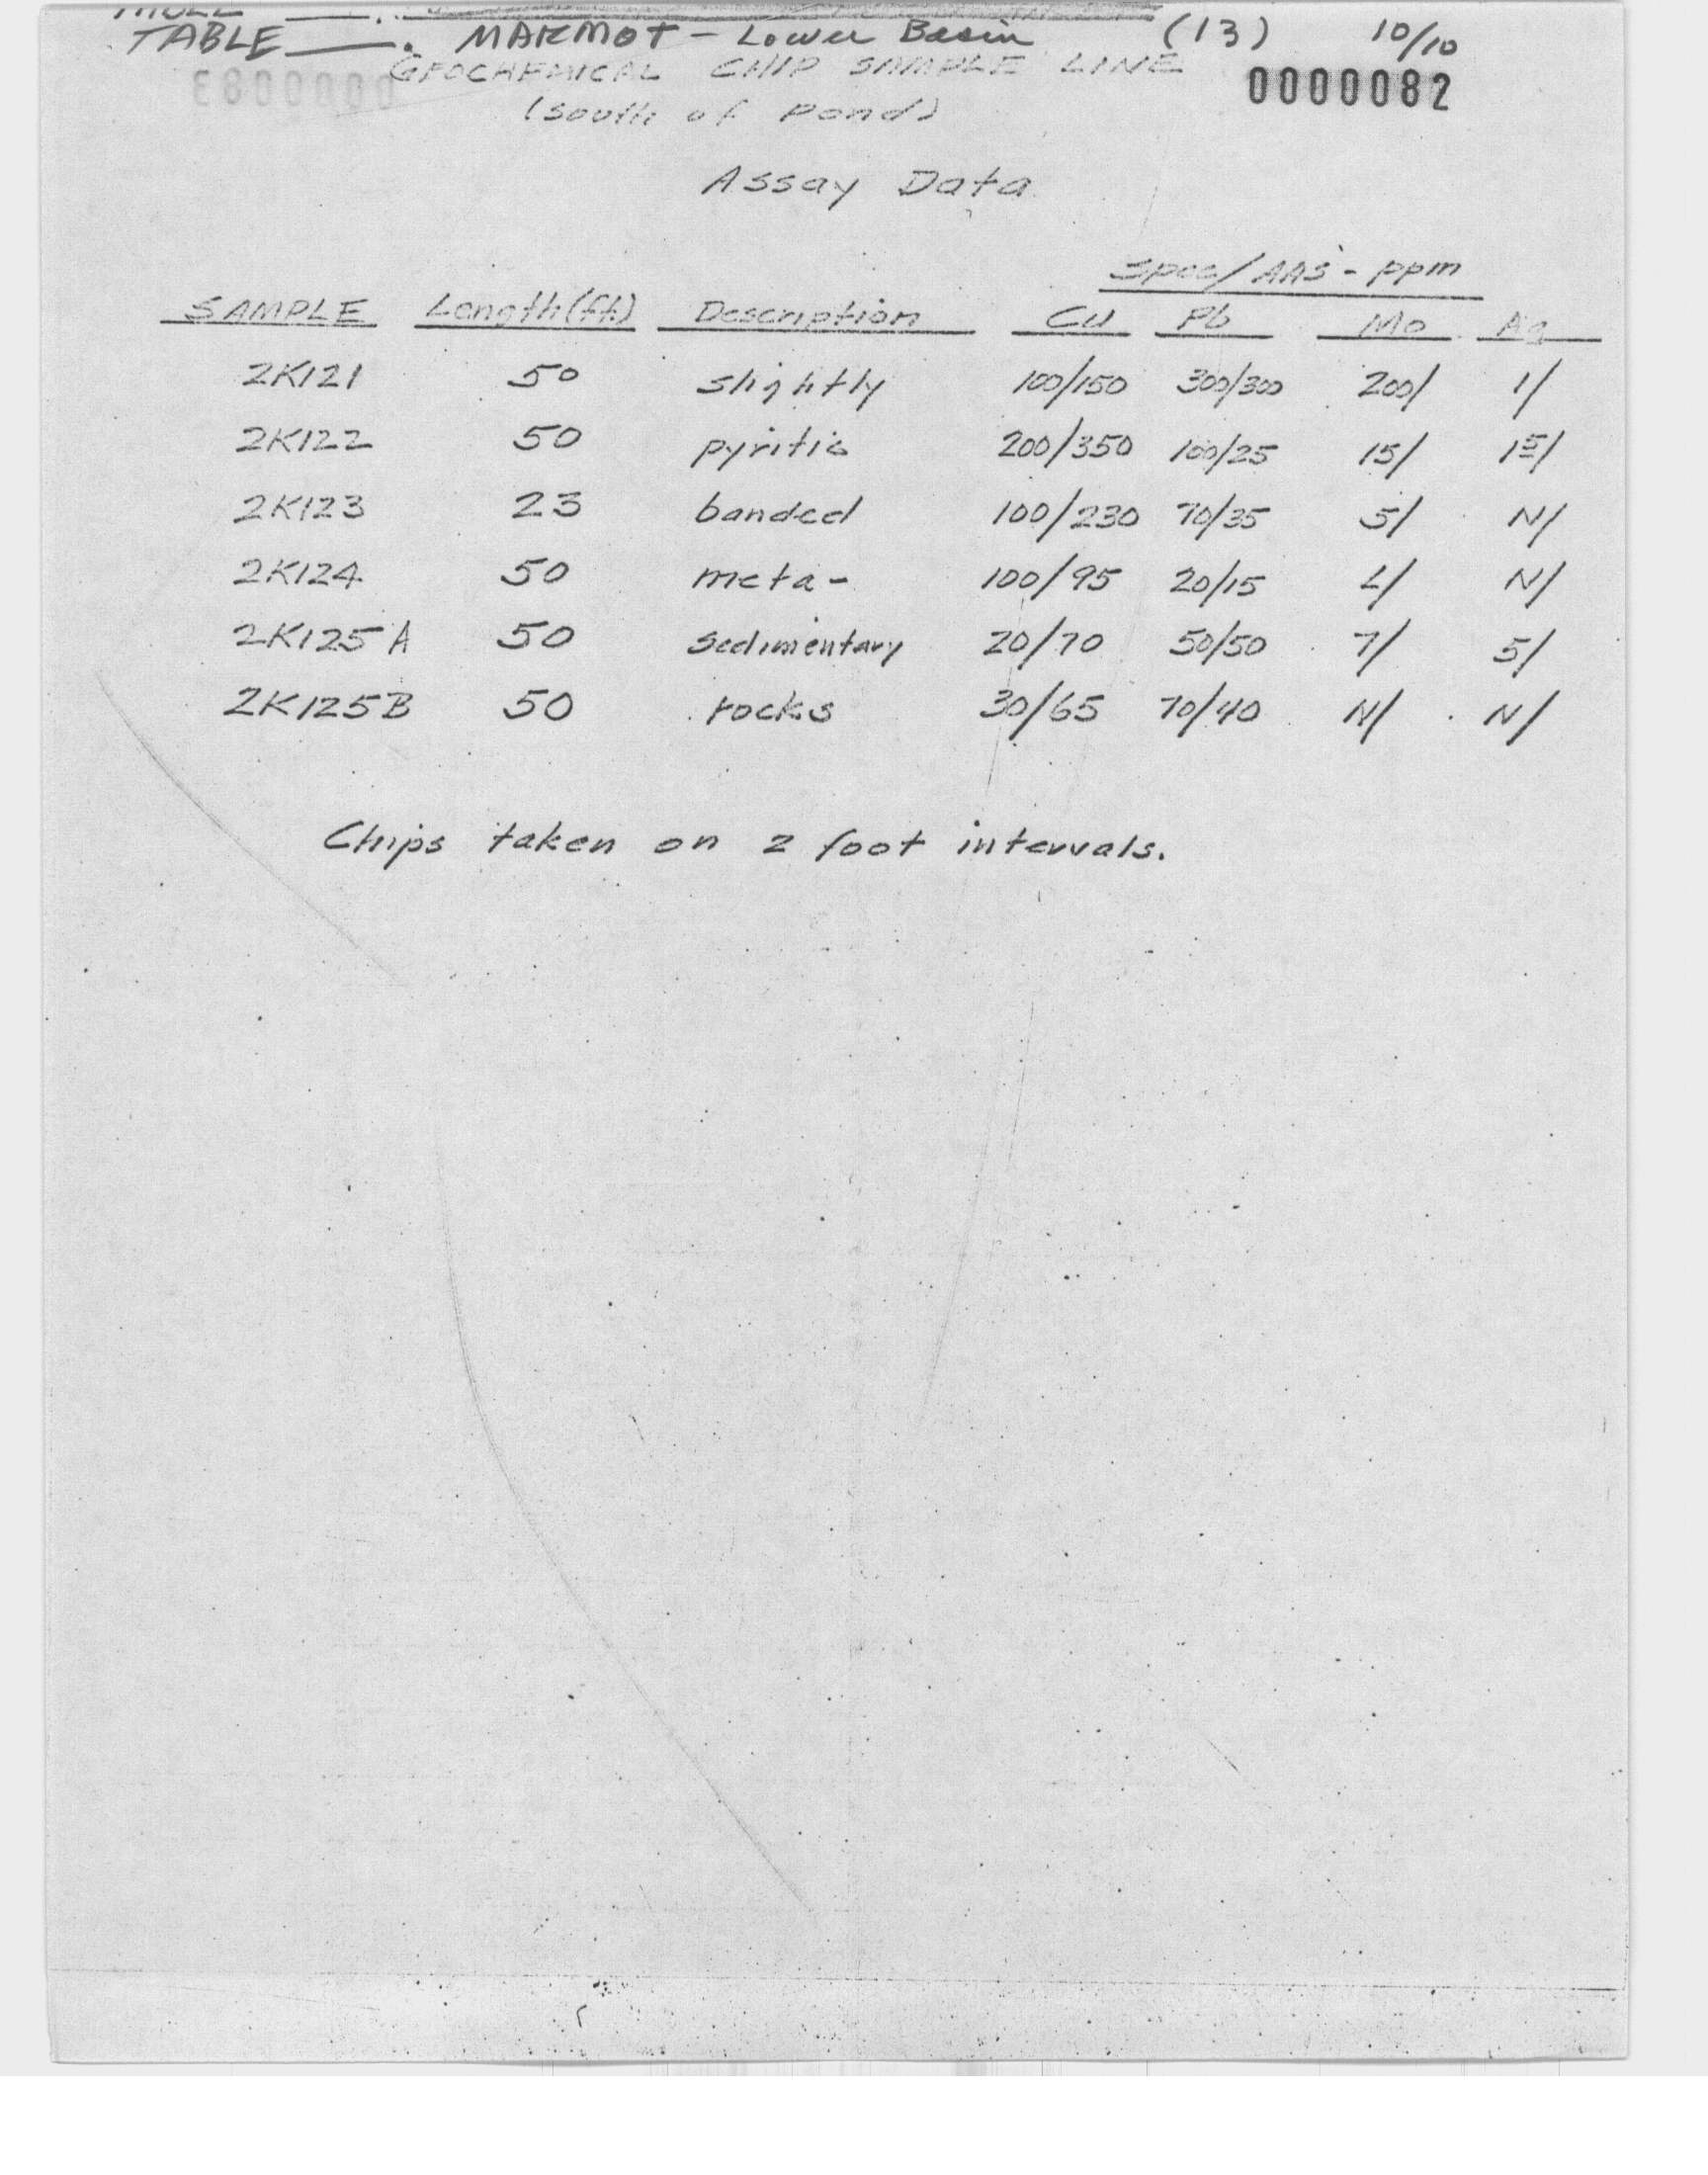 TABLE ___. MARMOT - Lower Basin (13) 10/10
GEOCHEMICAL CHIP SAMPLE LINE 0000082
(South of Pond)
Assay Data
Spec/AAS - ppm
SAMPLE Length (ft.) Description Cu Pb Mo Ag
2K121 50 slightly 100/150 300/300 200/ 1/
2K122 50 pyritic 200/350 100/25 15/ 15/
2K123 23 banded 100/230 70/35 5/ N/
2K124 50 meta- 100/95 20/15 L/ N/
2K125A 50 sedimentary 20/70 50/50 7/ 5/
2K125B 50 rocks 30/65 70/40 N/ N/
Chips taken on 2 foot intervals.